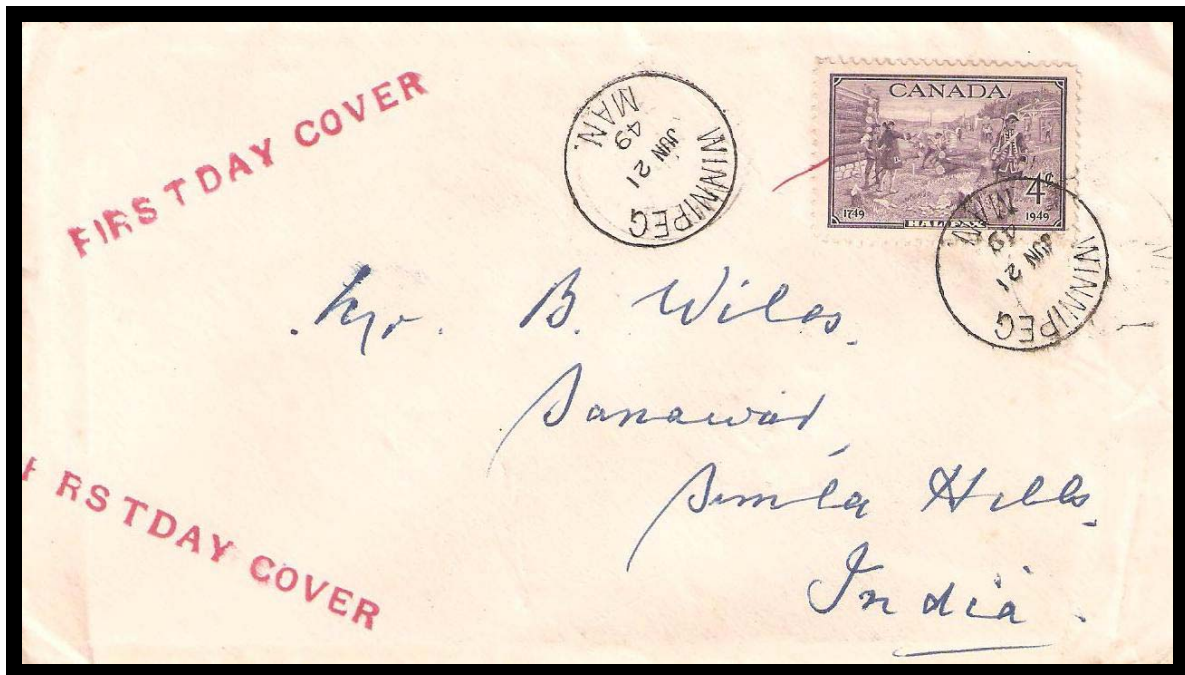 FIRST DAY COVER
WINNIPEG
JUN 21
49
MAN.
CANADA
4¢
1749
HALIFAX
1949
WINNIPEG
JUN 21
49
MAN.
Mr. B. Wiles.
Sanawar,
Simla Hills.
India.
FIRST DAY COVER